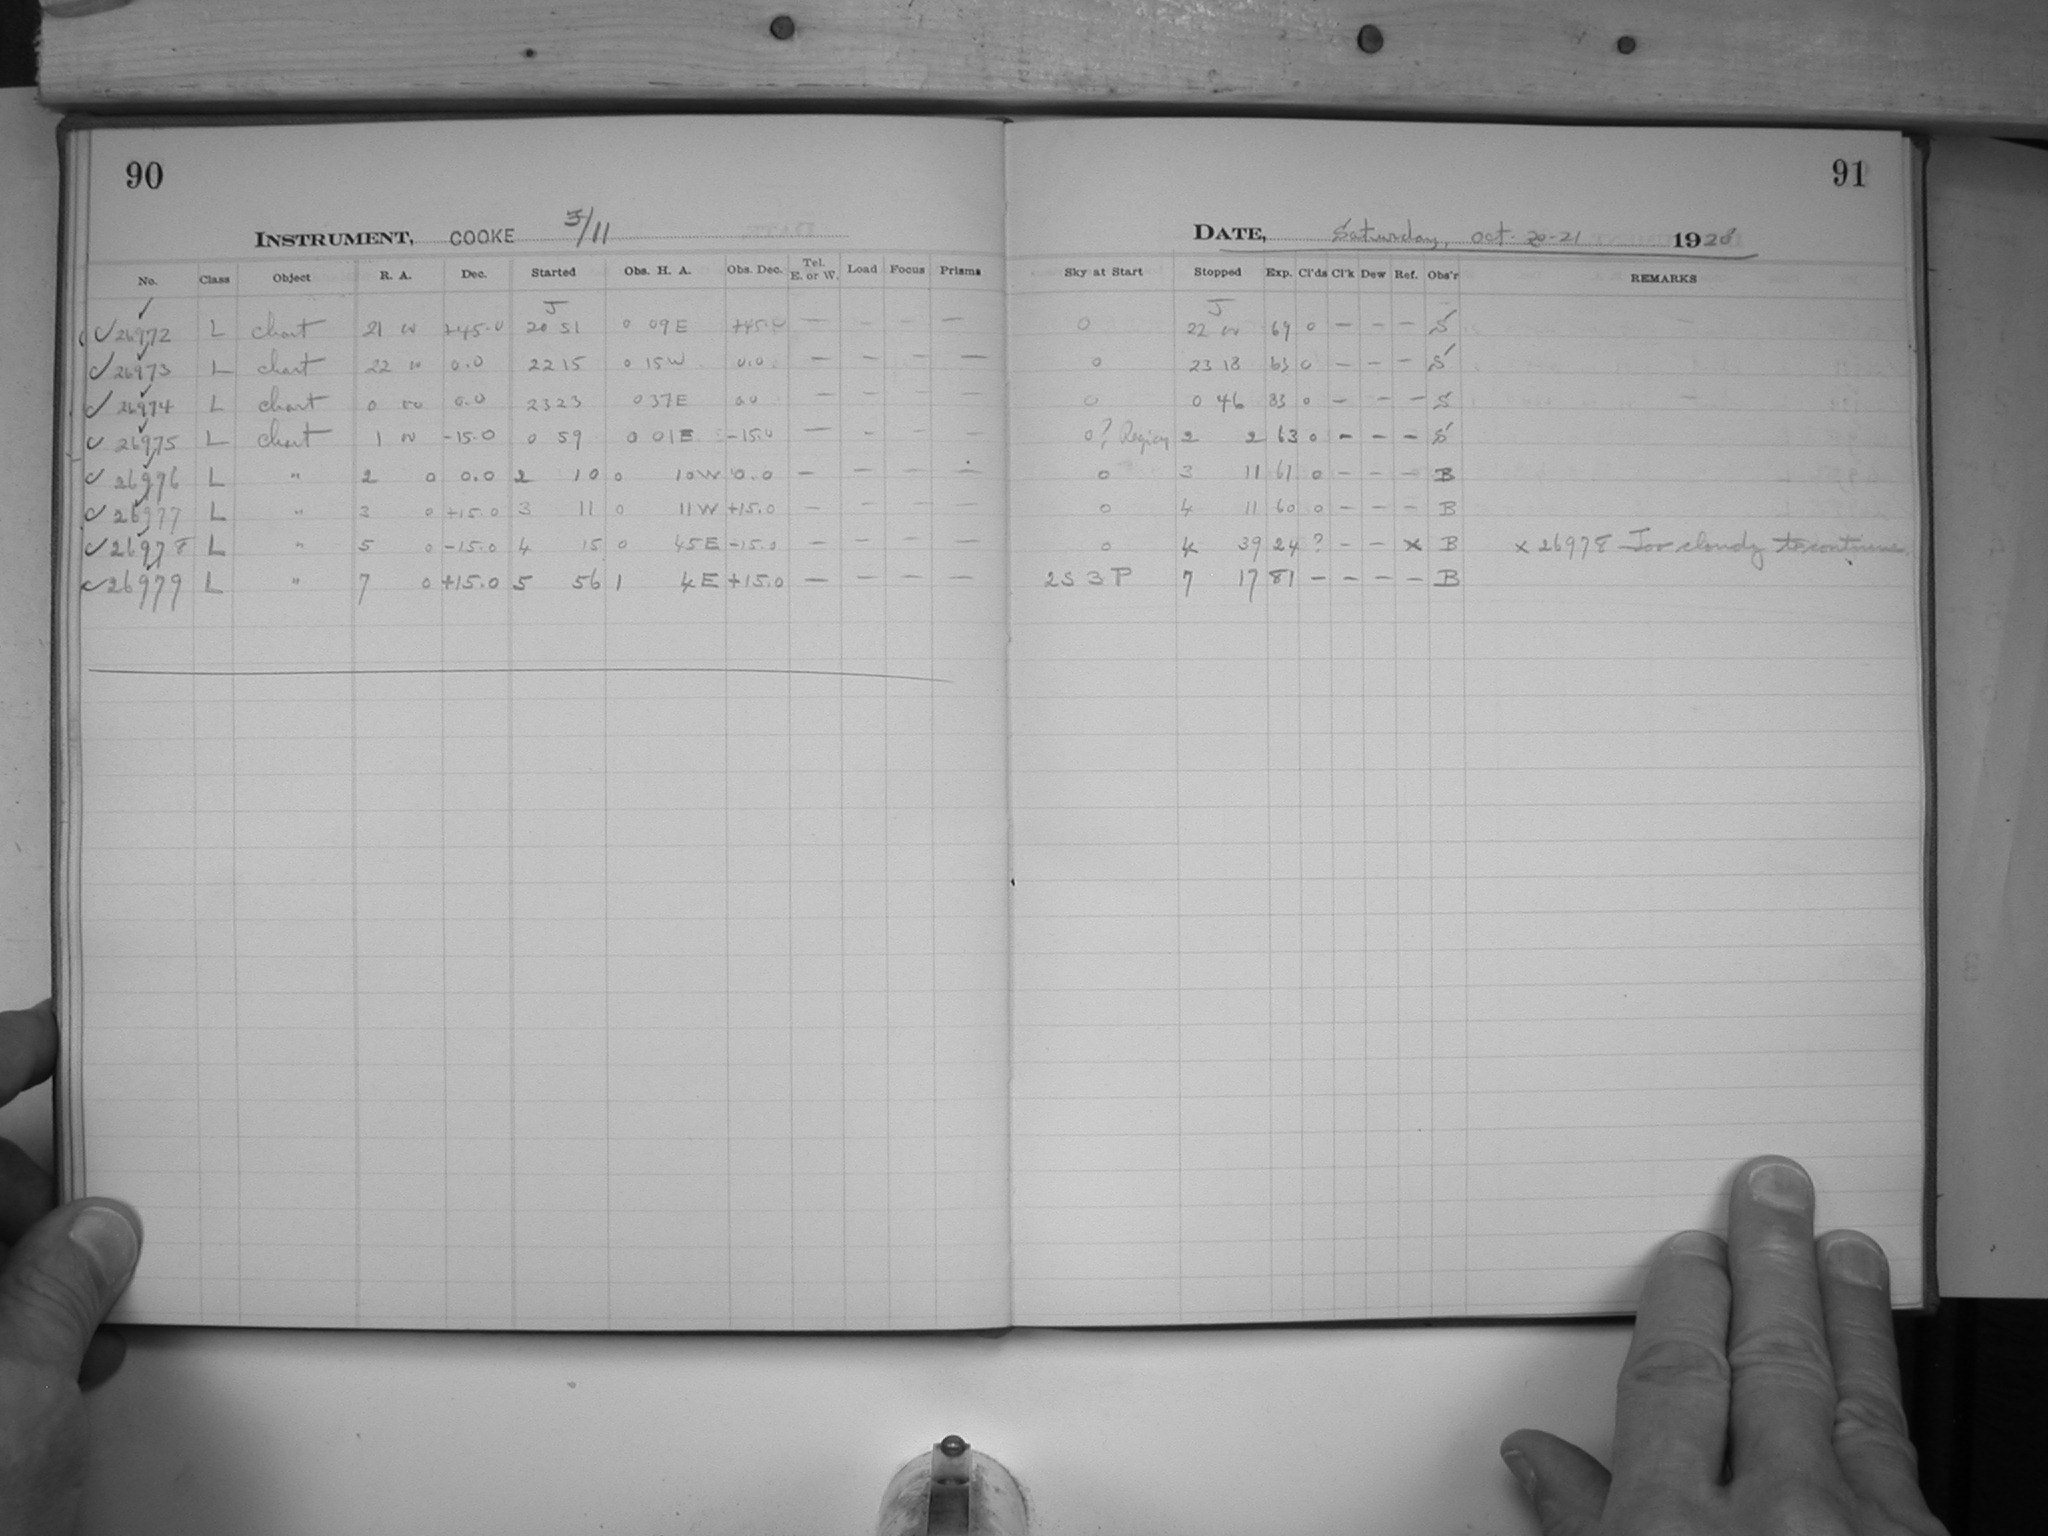 90
INSTRUMENT, COOKE 3/11
No. Class Object R. A. Dec. Started Obs. H. A. Obs. Dec. Tel. E. or W. Load Focus Prisms
J
✓ 26972 L chart 21 00 +45.0 20 51 0 09E +45.0 — — — —
✓ 26973 L chart 22 00 0.0 22 15 0 15W 0.0 — — — —
✓ 26974 L chart 0 00 0.0 23 23 0 37E 0.0 — — — —
✓ 26975 L chart 1 00 -15.0 0 59 0 01E -15.0 — — — —
✓ 26976 L " 2 0 0.0 2 10 0 10W 0.0 — — — —
✓ 26977 L " 3 0 +15.0 3 11 0 11W +15.0 — — — —
✓ 26978 L " 5 0 -15.0 4 15 0 45E -15.0 — — — —
✓ 26979 L " 7 0 +15.0 5 56 1 4E +15.0 — — — —
91
DATE, Saturday, Oct. 20-21 1928
Sky at Start Stopped Exp. Cl'ds Cl'k Dew Ref. Obs'r REMARKS
J
0 22 00 69 0 — — — S
0 23 18 63 0 — — — S
0 0 46 83 0 — — — S
0? Region 2 2 63 0 — — — S
0 3 11 61 0 — — — B
0 4 11 60 0 — — — B
0 4 39 24 ? — — x B x 26978 Too cloudy to continue.
2S 3P 7 17 81 — — — — B